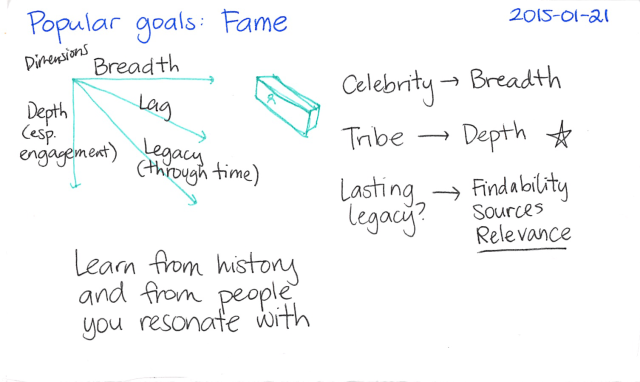 Popular goals: Fame
2015-01-21
Dimensions
Breadth
Lag
Legacy
(through time)
Depth
(esp.
engagement)
Celebrity → Breadth
Tribe → Depth ☆
Lasting → Findability
legacy? Sources
Relevance
Learn from history
and from people
you resonate with